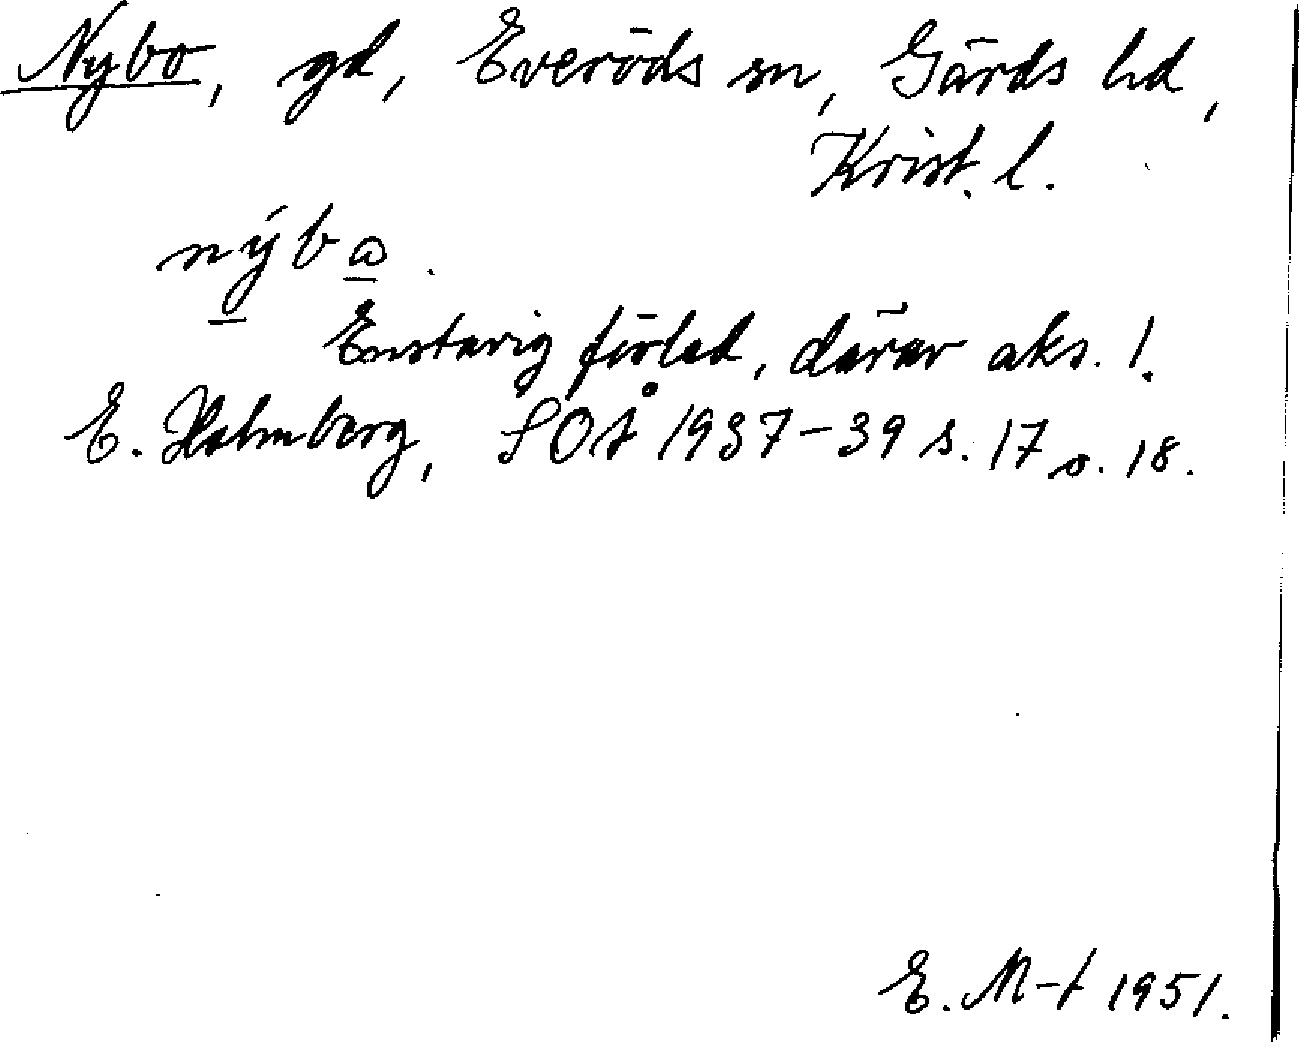 Nybo, gd, Everöds sn, Gärds hd,
Krist. l.
nýbω.
Enstavig förled, därav aks. 1.
E. Holmberg, SOÅ 1937-39 s. 17 o. 18.
E. M-t 1951.